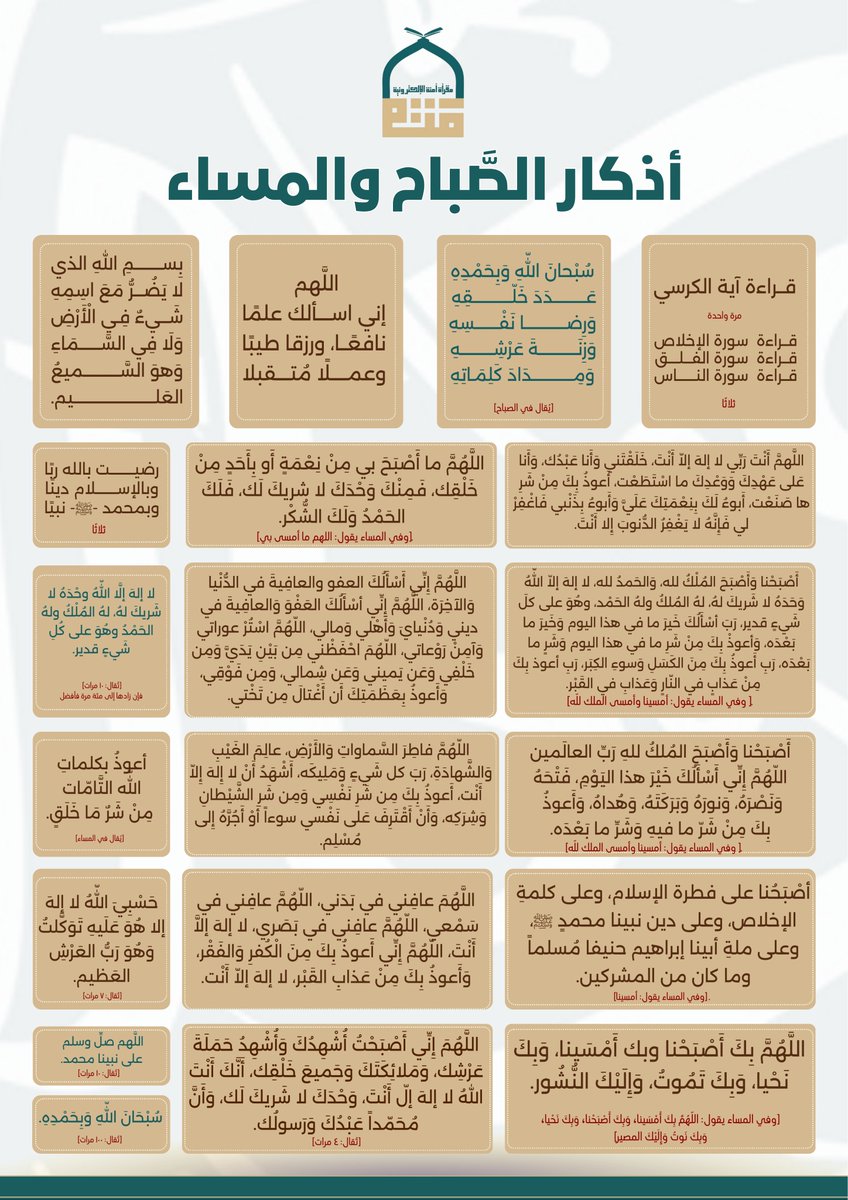 مقرأة آمنة الإلكترونية
آمنة
أذكار الصَّباح والمساء
قراءة آية الكرسي
مرة واحدة
قراءة سورة الإخلاص
قراءة سورة الفلق
قراءة سورة الناس
ثلاثا
سُبْحانَ اللَّهِ وَبِحَمْدِهِ
عَدَدَ خَلْقِهِ
وَرِضا نَفْسِهِ
وَزِنَةَ عَرْشِهِ
وَمِدَادَ كَلِمَاتِهِ
[يُقال في الصباح]
اللَّهم
إني اسألك علمًا
نافعًا، ورزقا طيبًا
وعملًا مُتقبلا
بِسمِ اللهِ الذي
لا يَضُرُّ مَعَ اسمِهِ
شَيءٌ فِي الْأَرْضِ
وَلَا فِي السَّمَاءِ
وَهوَ السَّمِيعُ
العَلِيم.
اللَّهمَّ أَنْتَ رَبِّي لا إلهَ إلاّ أَنْتَ، خَلَقْتَني وَأنا عَبْدُك، وَأنا
عَلى عَهْدِكَ وَوَعْدِكَ ما اسْتَطَعْت، أعوذُ بِكَ مِنْ شَرِ
ها صَنَعْت، أبوءُ لَكَ بِنِعْمَتِكَ عَلَيَّ وَأبوءُ بِذَنْبي فَاغْفِرْ
لي فَإنَّهُ لا يَغْفِرُ الذُّنوبَ إِلا أنْتَ.
اللَّهُمَّ ما أَصْبَحَ بي مِنْ نِعْمَةٍ أَو بِأَحَدٍ مِنْ
خَلْقِك، فَمِنْكَ وَحْدَكَ لا شريكَ لَك، فَلَكَ
الحَمْدُ وَلَكَ الشُّكْر.
[وفي المساء يقول: اللهم ما أمسى بي].
رضيت بالله ربًا
وبالإسلام دينًا
وبمحمد -ﷺ- نبيًا
ثلاثًا
أَصْبَحْنا وَأَصْبَحَ المُلْكُ لله، وَالحَمدُ لله، لا إلهَ إلاّ اللهُ
وَحدَهُ لا شَريكَ لهُ، لهُ المُلكُ ولهُ الحَمْد، وهُوَ على كلّ
شَيءٍ قدير، رَبِّ أسْألُكَ خَيرَ ما في هذا اليوم وَخَيرَ ما
بَعْدَه، وَأعوذُ بِكَ مِنْ شَرِ ما في هذا اليوم وَشَرِ ما
بَعْدَه، رَبِّ أعوذُ بِكَ مِنَ الكَسَلِ وَسوءِ الكِبَر، رَبِّ أعوذ بِكَ
مِنْ عَذابٍ في النّارِ وَعَذابٍ في القَبْر.
[ وفي المساء يقول: أمسينا وأمسى الملك لله].
اللَّهُمَّ إنِّي أسْأَلُكَ العفو والعافِيةَ في الدُّنْيا
وَالآخِرَة، اللَّهُمَّ إنِّي أسْأَلُكَ العَفْوَ وَالعافِيةَ في
ديني وَدُنْيايَ وَأهْلي وَمالي، اللَّهُمَّ اسْتُرْ عوراتي
وَآمِنْ رَوْعاتي، اللَّهُمَّ احْفَظْني مِن بَيْنِ يَدَيَّ وَمِن
خَلْفِي وَعَن يَميني وَعَن شِمالي، وَمِن فَوْقِي،
وَأعوذُ بِعَظَمَتِكَ أن أُغْتالَ مِن تَحْتي.
لا إلهَ إلَّا اللهُ وحْدَهُ لا
شَريكَ لهُ، لهُ المُلْكُ ولهُ
الحَمْدُ وهُوَ على كُلِ
شَيءٍ قدير.
[تُقال: ١٠ مرات]
فإن زادها إلى مئة مرة فأفضل
أَصْبَحْنا وَأَصْبَحَ المُلكُ للهِ رَبِّ العالَمين
اللَّهُمَّ إنِّي أسْأَلُكَ خَيْرَ هذا اليَوْمِ، فَتْحَهُ
وَنَصْرَهُ، وَنورَهُ وَبَرَكَتَهُ، وَهُداهُ، وَأعوذُ
بِكَ مِنْ شَرِّ ما فيهِ وَشَرِّ ما بَعْدَه.
[ وفي المساء يقول: أمسينا وأمسى الملك لله].
اللَّهُمَّ فاطِرَ السَّماواتِ وَالأَرْضِ، عالِمَ الغَيْبِ
وَالشَّهادَةِ، رَبَّ كل شَيءٍ وَمَلِيكَه، أَشْهَدُ أنْ لا إلهَ إلاّ
أنْت، أعوذُ بِكَ مِن شَرِ نَفْسِي وَمِن شَرِ الشَّيْطانِ
وَشِركِه، وَأنْ أقْتَرِفَ عَلى نَفْسي سوءاً أَوْ أجُرَّهُ إلى
مُسْلِم.
أعوذُ بكلماتِ
اللهِ التَّامّات
مِنْ شَرِّ مَا خَلَقٍ.
[يُقال في المساء]
أصْبَحْنا على فطرة الإسلام، وعلى كلمةِ
الإخلاص، وعلى دين نبينا محمدٍ ﷺ
وعلى ملةِ أبينا إبراهيم حنيفا مُسلماً
وما كان من المشركين.
[وفي المساء يقول: أمسينا].
اللَّهُمَّ عَافِني في بَدَني، اللَّهُمَّ عافِني في
سَمْعي، اللَّهُمَّ عافِني في بَصَري، لا إلهَ إلاَّ
أَنْتَ، اللَّهُمَّ إنِّي أعوذُ بِكَ مِنَ الْكُفرِ وَالفَقْر،
وَأعوذُ بِكَ مِنْ عَذابِ القَبْر، لا إلهَ إلاّ أَنْت.
حَسْبِيَ اللَّهُ لا إلهَ
إلا هُوَ عَلَيهِ تَوَكَّلتُ
وَهُوَ رَبُّ العَرْشِ
العَظيم.
[تُقال: ٧ مرات]
اللَّهُمَّ بِكَ أَصْبَحْنا وبك أَمْسَينا، وَبِكَ
نَحْيا، وَبِكَ تَموتُ، وَإِلَيْكَ النُّشُور.
[وفي المساء يقول: اللَّهُمَّ بِكَ أَمْسَينا، وَبِكَ أَصْبَحْنا، وَبِكَ نَحْيا،
وَبِكَ نَموتُ وَإِلَيْكَ المصير]
اللَّهُمَّ إنِّي أَصْبَحتُ أُشْهِدُكَ وَأُشْهِدُ حَمَلَةَ
عَرْشِك، وَمَلائِكَتَكَ وَجَميعَ خَلْقِك، أنَّكَ أَنْتَ
اللهُ لا إلهَ إلّ أَنْتَ، وَحْدَكَ لا شَريكَ لَك، وَأنَّ
مُحَمّداً عَبْدُكَ وَرَسولُك.
[تُقال: ٤ مرات]
اللَّهم صلِّ وسلم
على نبينا محمد.
[تُقال: ١٠ مرات]
سُبْحَانَ اللَّهِ وَبِحَمْدِهِ.
[تُقال: ١٠٠ مرات]